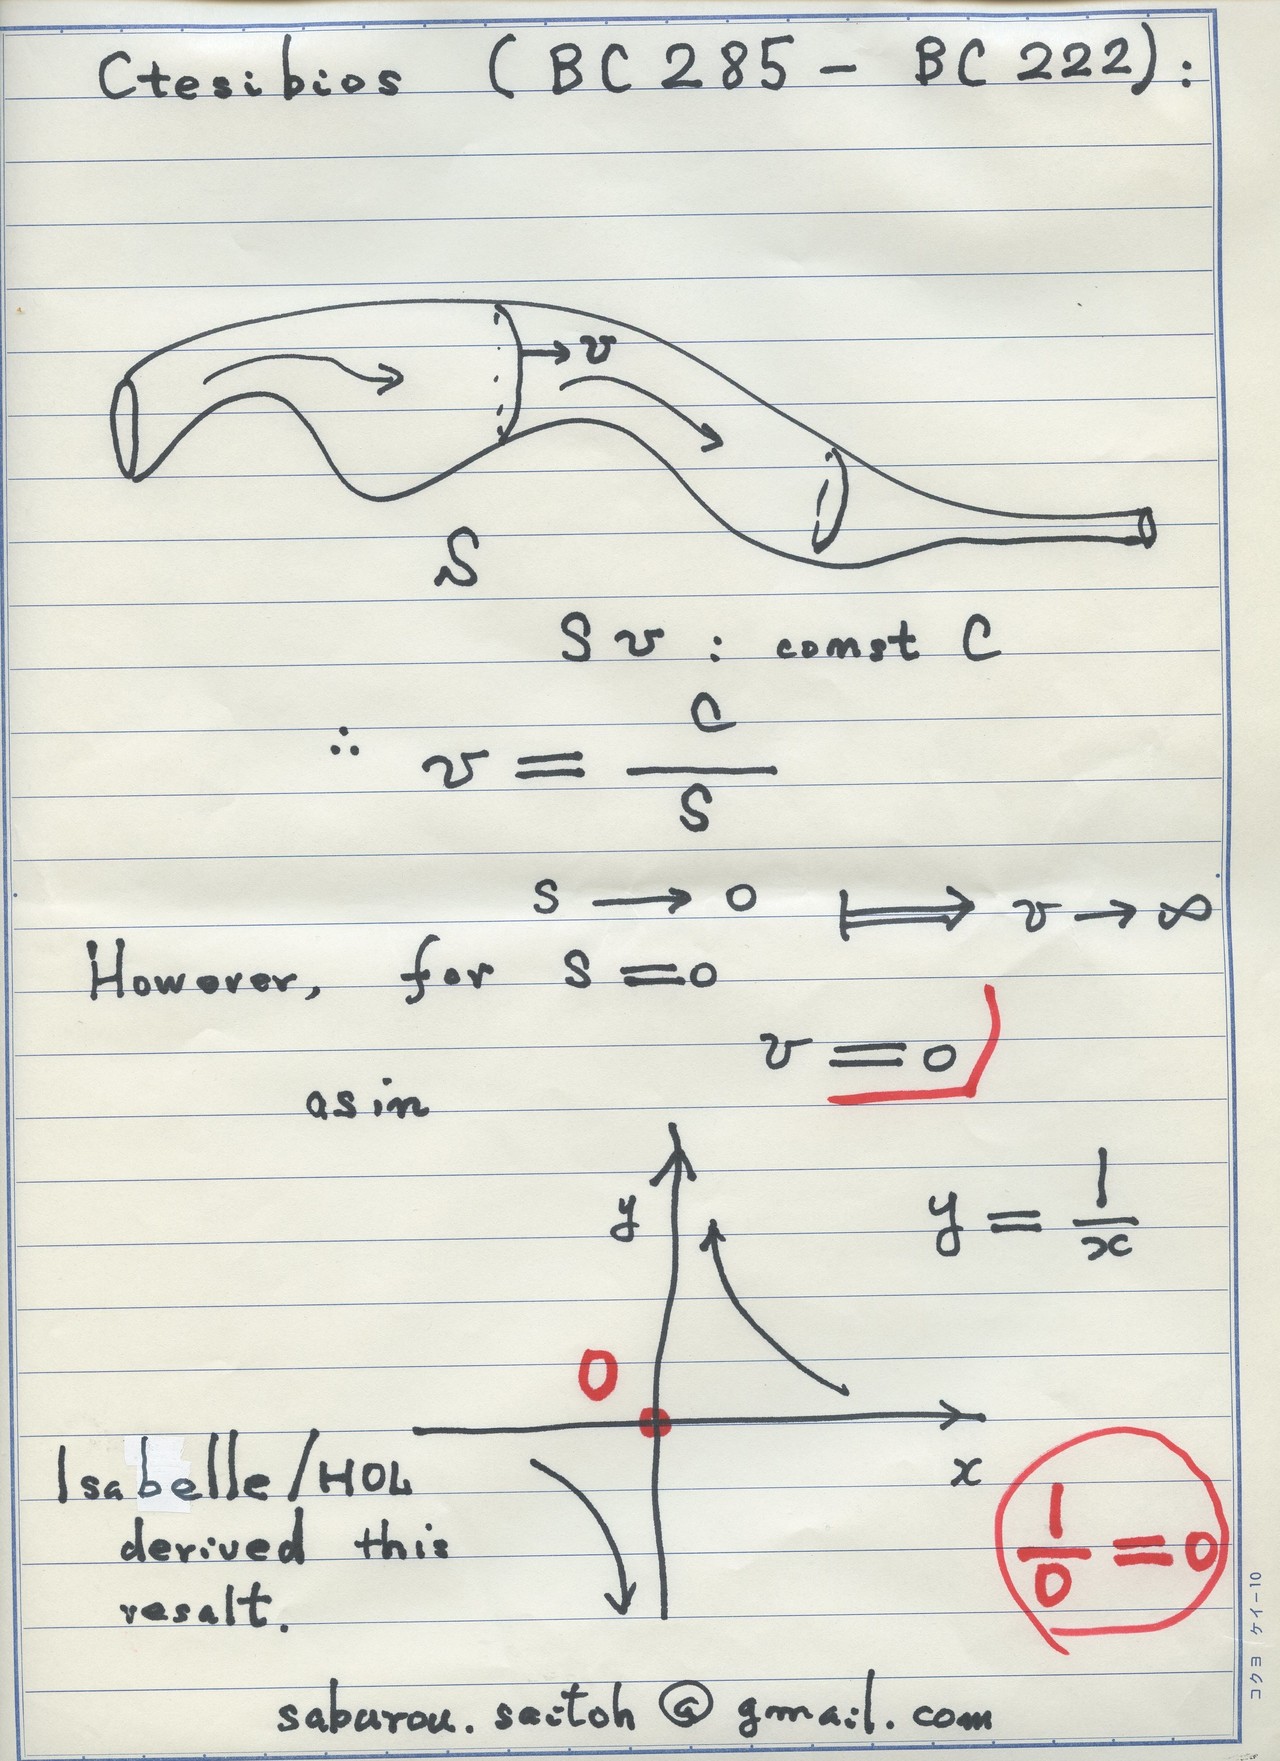 Ctesibios (BC 285 - BC 222):
v
S
S v : const C
∴ v = C/S
s → 0 ⟼ v → ∞
However, for s = 0
v = 0
as in
y
y = 1/x
0
x
Isabelle/HOL
derived this
resalt.
1/0 = 0
saburou.saitoh@gmail.com
コクヨ ケイ-10